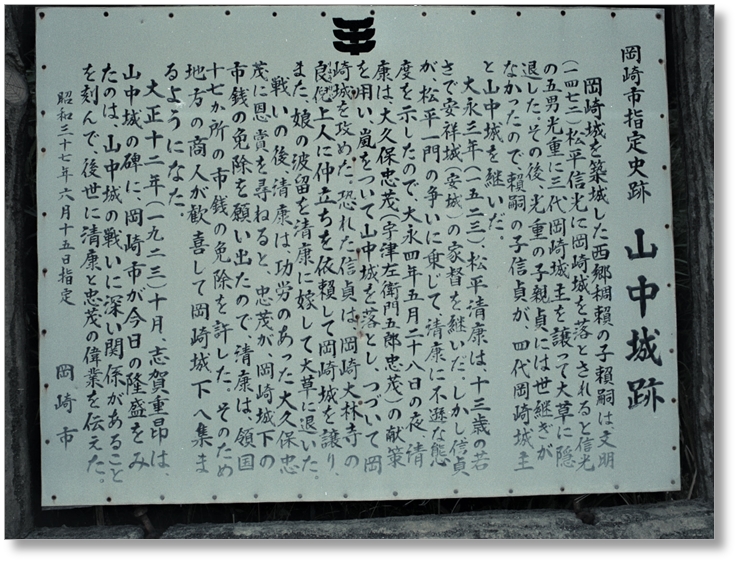 岡崎市指定史跡 山中城跡
岡崎城を築城した西郷稠頼の子頼嗣は文明
(一四七二)松平信光に岡崎城を落とされると信光
の五男光重に三代岡崎城主を譲って大草に隠
退した。その後、光重の子親貞には世継ぎが
なかったので、頼嗣の子信貞が、四代岡崎城主
と山中城を継いだ。
大永三年(一五二三)、松平清康は、十三歳の若
さで安祥城(安城)の家督を継いだ。しかし信貞
が、松平一門の争いに乗じて、清康に不遜な態
度を示したので、大永四年五月二十八日の夜、清
康は、大久保忠茂(宇津左衛門五郎忠茂)の献策
を用い、嵐をついて山中城を落とし、つづいて岡
崎城を攻めた。恐れた信貞は、岡崎大林寺の
良倪上人に仲立ちを依頼して岡崎城を譲り、
また、娘の波留を清康に嫁して大草に退いた。
戦いの後、清康は、功労のあった大久保忠
茂に恩賞を尋ねると、忠茂が、岡崎城下の
市銭の免除を願い出たので、清康は、領国
十七か所の市銭の免除を許した。そのため
地方の商人が歓喜して岡崎城下へ集ま
るようになった。
大正十二年(一九二三)十月、志賀重昂は、
山中城の碑に、岡崎市が今日の隆盛をみ
たのは、山中城の戦いに深い関係があること
を刻んで、後世に清康と忠茂の偉業を伝えた。
昭和三十七年六月十五日指定 岡崎市